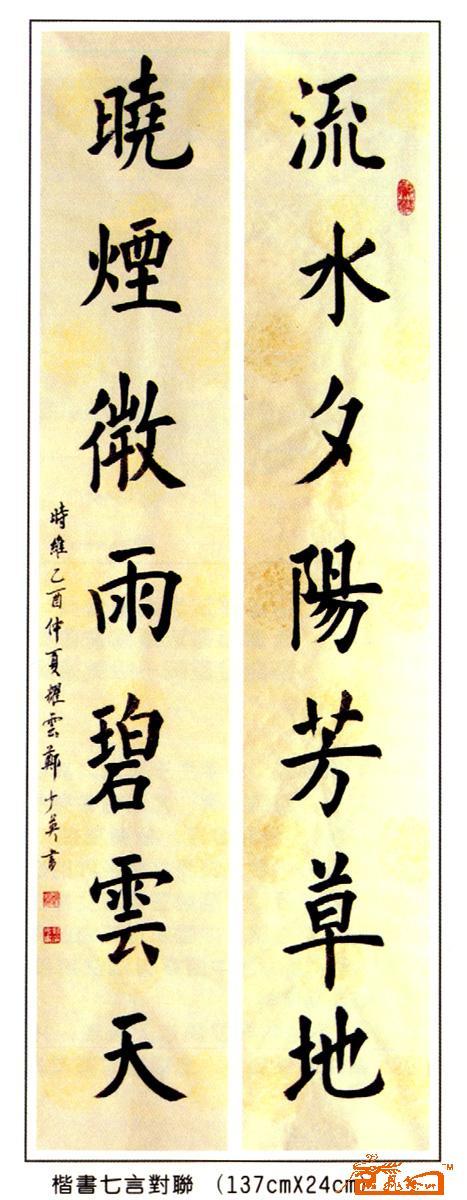 流水夕陽芳草地
曉煙微雨碧雲天
時維乙酉仲夏耀雲鄭少英書
楷書七言對聯 (137cmX24cm)